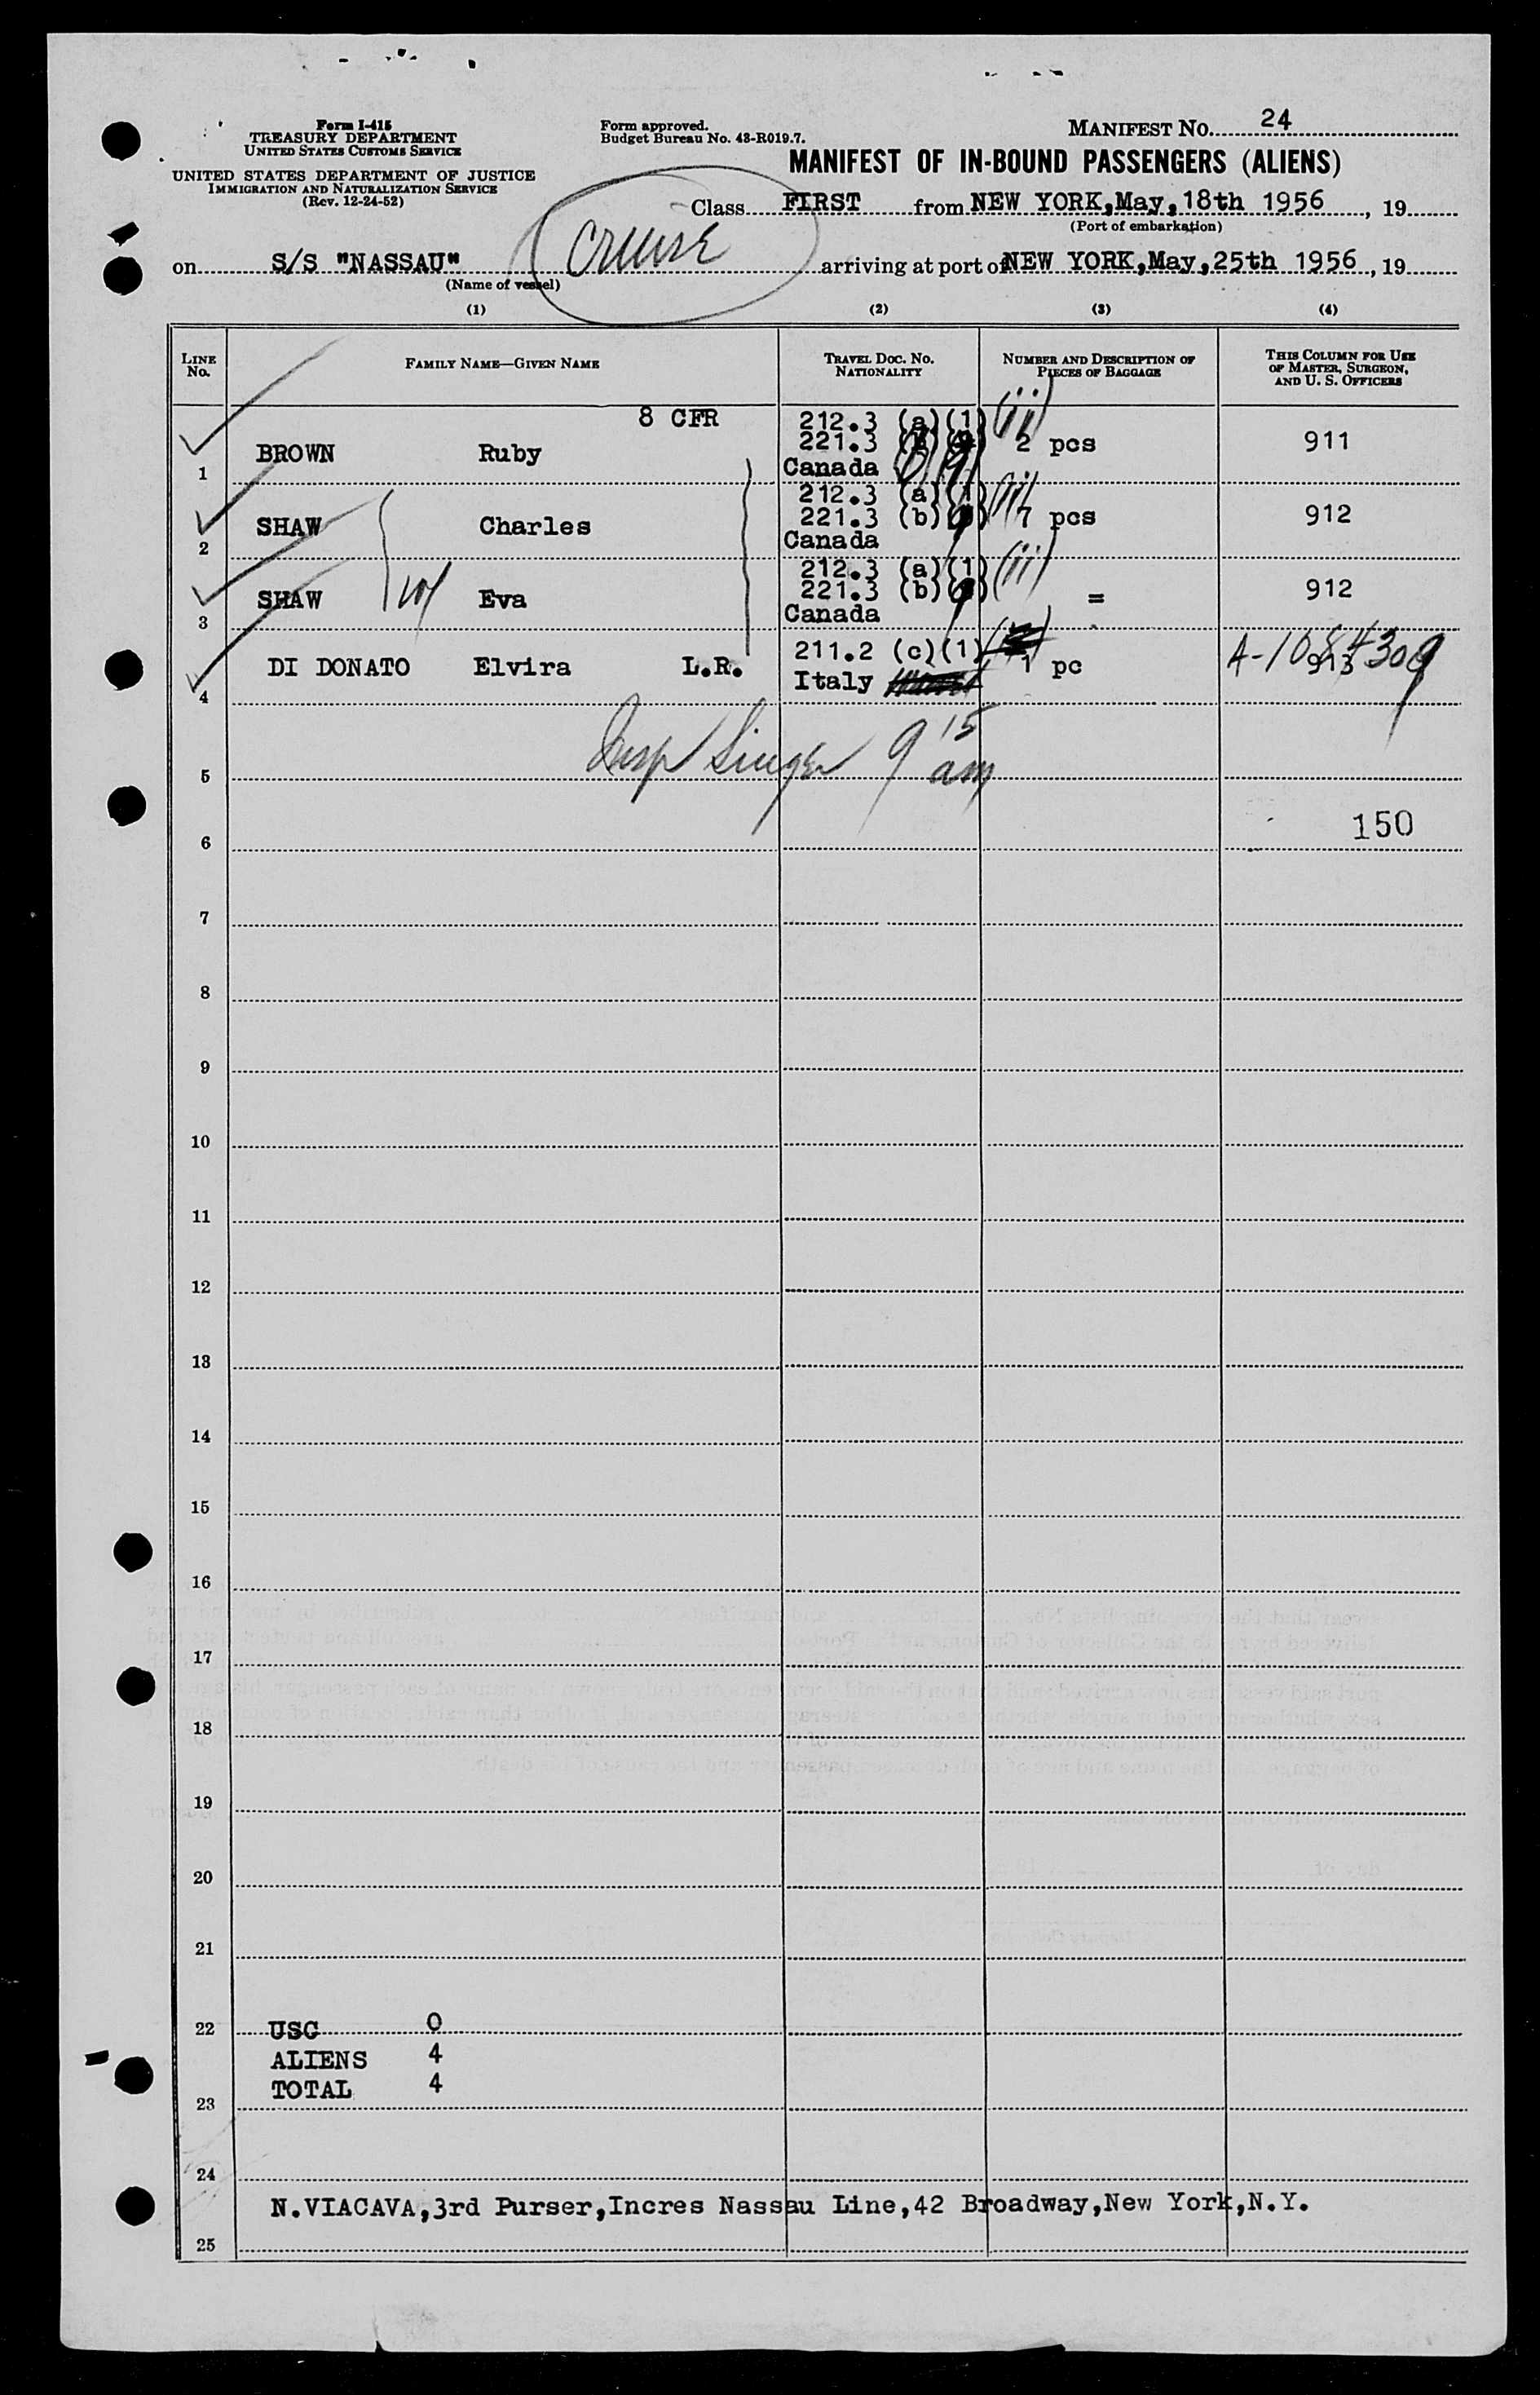 Form I-415
TREASURY DEPARTMENT
UNITED STATES CUSTOMS SERVICE
UNITED STATES DEPARTMENT OF JUSTICE
IMMIGRATION AND NATURALIZATION SERVICE
(Rev. 12-24-52)
Form approved.
Budget Bureau No. 43-R019.7.
MANIFEST NO. 24
MANIFEST OF IN-BOUND PASSENGERS (ALIENS)
Class FIRST from NEW YORK,May,18th 1956, 19
(Port of embarkation)
on S/S "NASSAU" cruise arriving at port of NEW YORK,May,25th 1956, 19
(Name of vessel)
(1) (2) (3) (4)
LINE NO. FAMILY NAME—GIVEN NAME TRAVEL DOC. NO. NATIONALITY NUMBER AND DESCRIPTION OF PIECES OF BAGGAGE THIS COLUMN FOR USE OF MASTER, SURGEON, AND U. S. OFFICERS
8 CFR 212.3 (a)(1)(ii)
221.3
1 BROWN Ruby Canada 2 pcs 911
212.3 (a)(1)(ii)
221.3 (b)
2 SHAW Charles Canada 7 pcs 912
212.3 (a)(1)(ii)
221.3 (b)
3 SHAW Eva Canada = 912
211.2 (c)(1)
4 DI DONATO Elvira L.R. Italy 1 pc 913 A-10843009
Insp Singer 9 15 am
5
150
6
7
8
9
10
11
12
13
14
15
16
17
18
19
20
21
22 USC 0
ALIENS 4
TOTAL 4
23
24
N.VIACAVA,3rd Purser,Incres Nassau Line,42 Broadway,New York,N.Y.
25